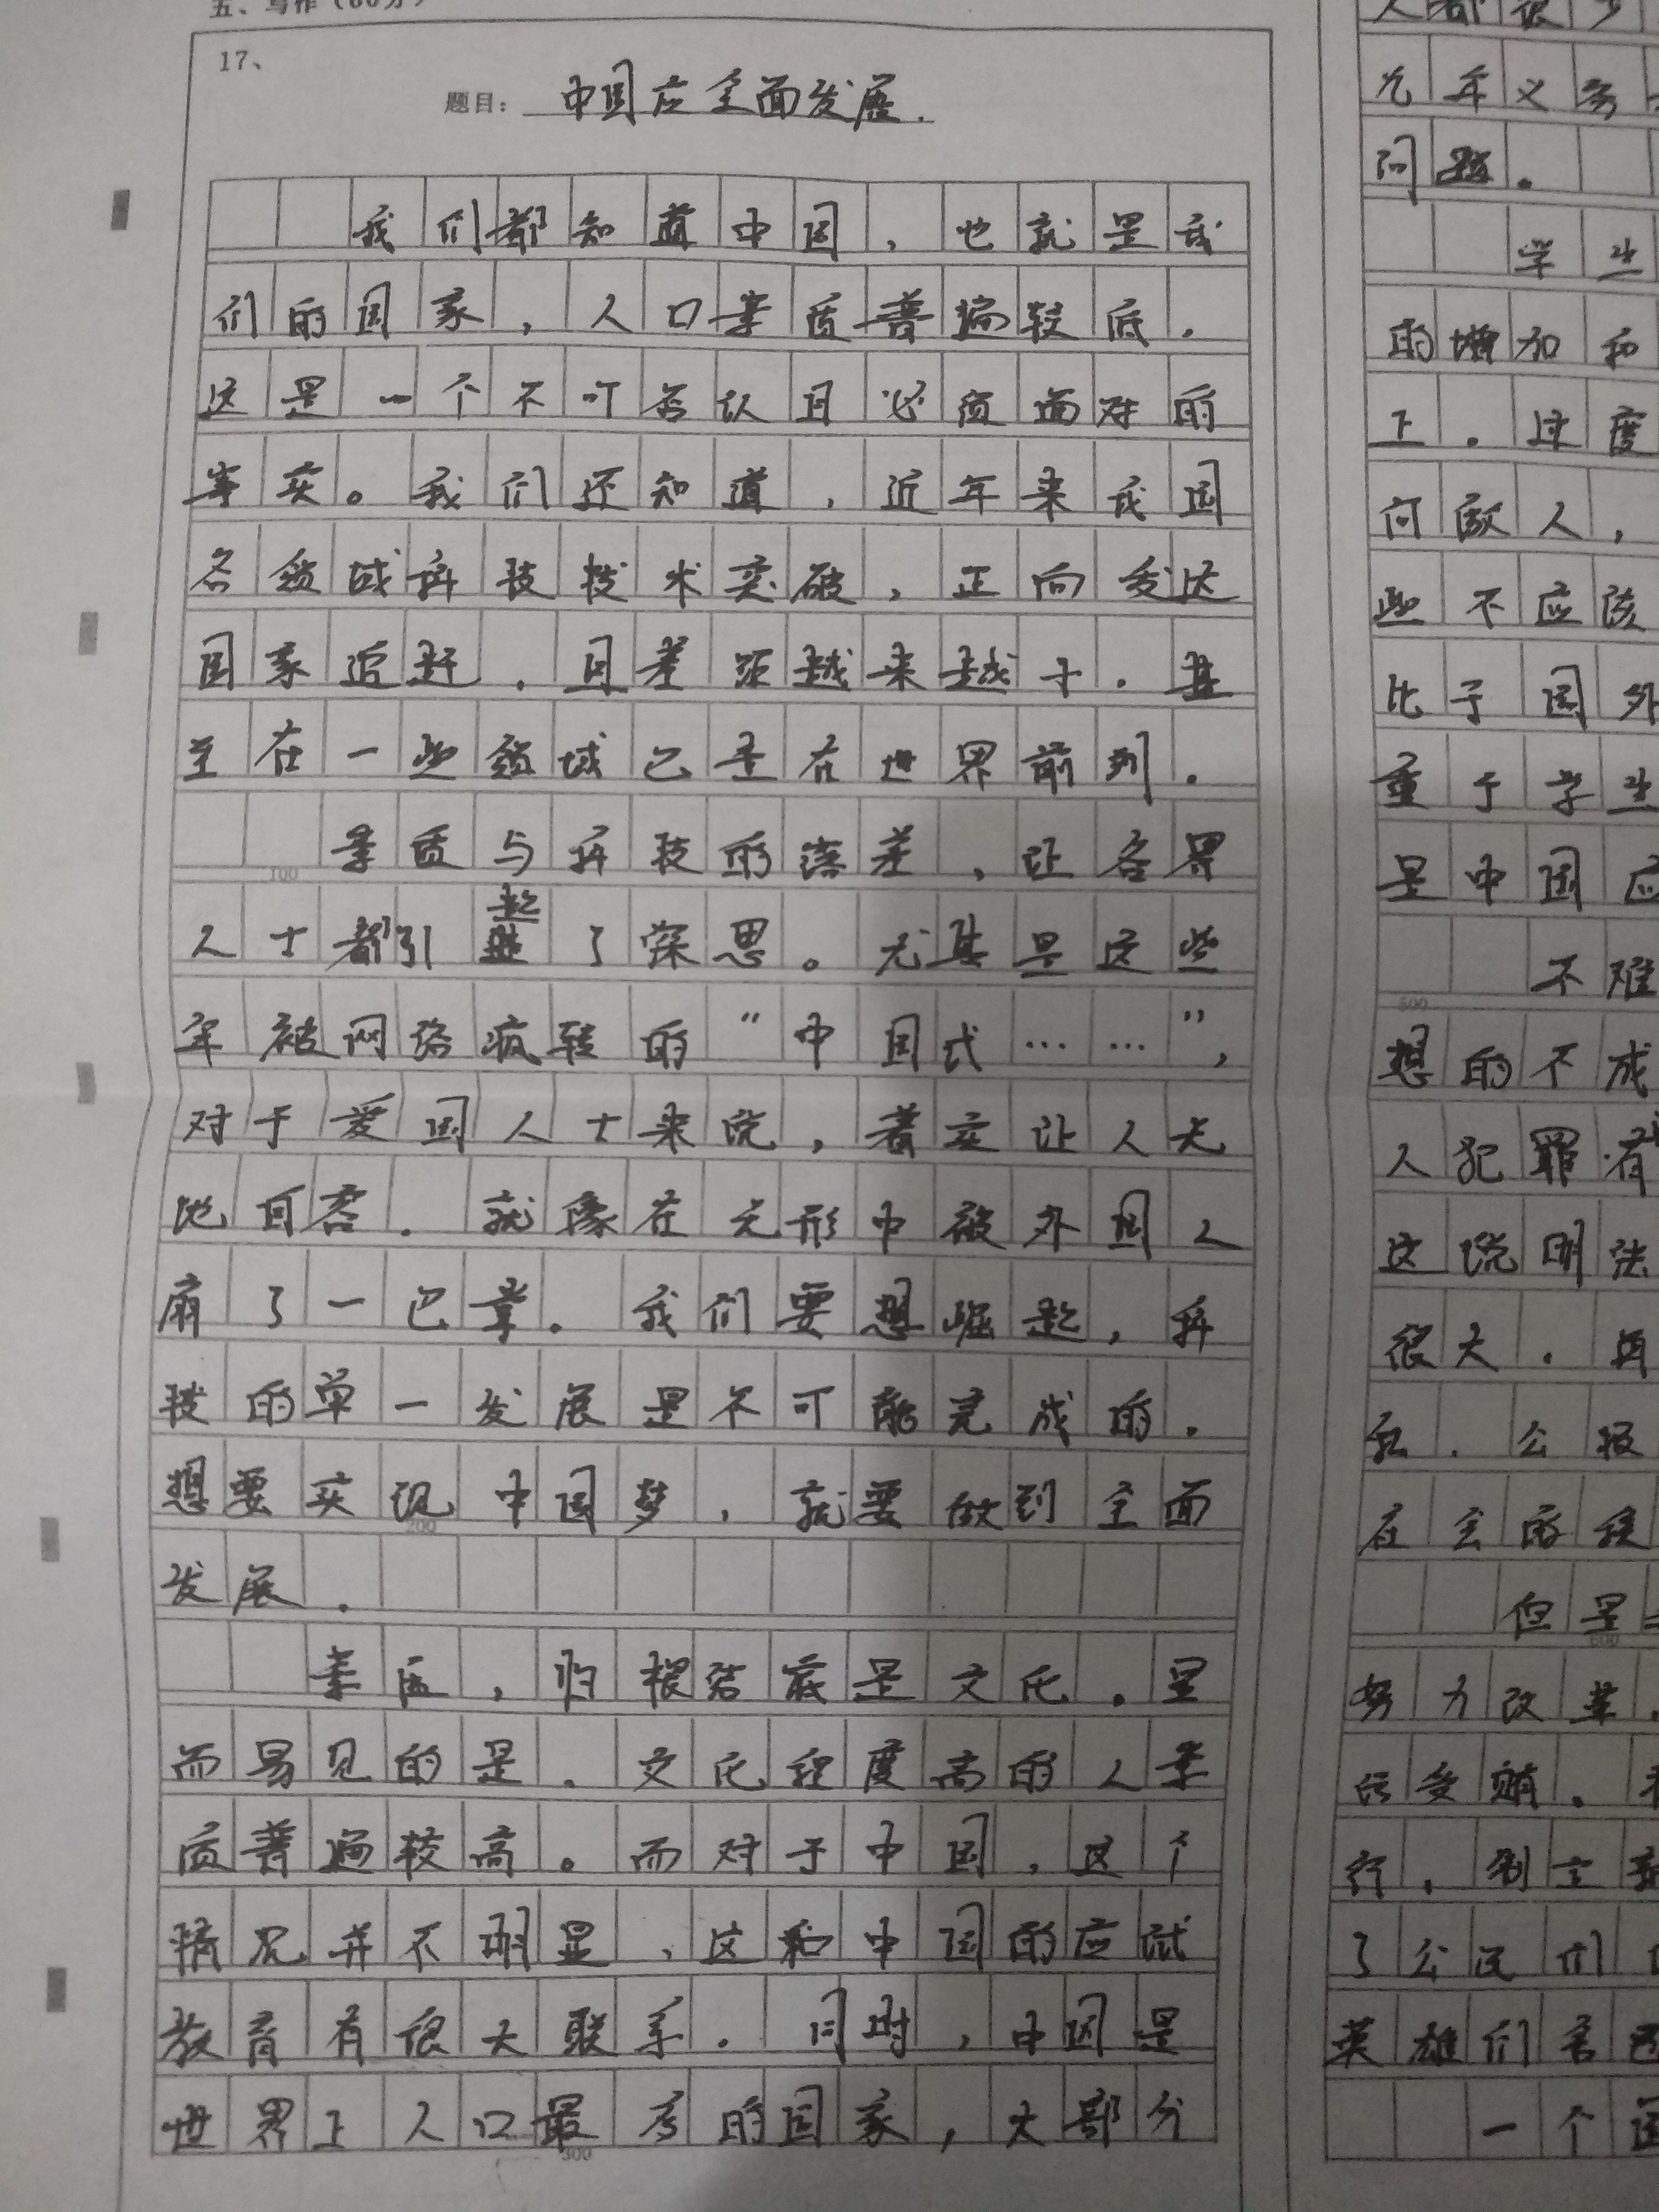 五、写作（60分）
17、
题目：中国应全面发展.
我们都知道中国，也就是我
们的国家，人口素质普遍较低.
这是一个不可否认且必须面对的
事实。我们还知道，近年来我国
各领域科技技术突破，正向发达
国家追赶.且差距越来越小.甚
至在一些领域已是在世界前列.
素质与科技的落差，让各界
100
人士都引起了深思。尤其是这些
年被网络疯转的“中国式……”，
对于爱国人士来说，着实让人无
地自容.就像在无形中被外国人
扇了一巴掌.我们要想崛起，科
技的单一发展是不可能完成的.
想要实现中国梦，就要做到全面
200
发展.
素质，归根结底是文化.显
而易见的是.文化程度高的人素
质普遍较高。而对于中国，这个
情况并不明显，这和中国的应试
教育有很大联系.同时，中国是
世界上人口最多的国家，大部分
300
人都很少
九年义务
问题.
学生
的增加和
上。过度
何敌人，
些不应该
比于国外
重于学生
是中国应
不难
500
想的不成
人犯罪有
这说明法
很大.再
私.公报
在会的
但是
600
努力改革.
污受贿.
行，制
了公民们
英雄们
一个国